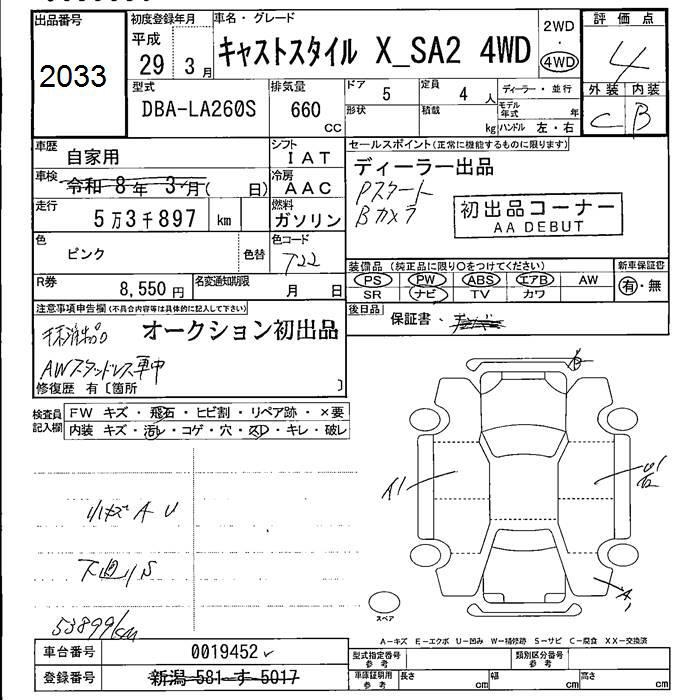 出品番号
2033
初度登録年月
平成
29 3月
車名・グレード
キャストスタイル X_SA2 4WD
2WD
4WD
評価点
4
外装 内装
C B
型式
DBA-LA260S
排気量
660
CC
ドア 5
形状
定員 4 人
積載 kg
ディーラー・並行
モデル年式 年
ハンドル 左・右
車歴 自家用
シフト IAT
車検 令和 8年 3月( 日)
冷房 AAC
走行 5万3千897 km
燃料 ガソリン
色 ピンク 色替
色コード T22
R券 8,550円
名変通知期限 月 日
セールスポイント(正常に機能するものに限ります)
ディーラー出品
Pスタート
Bカメラ
初出品コーナー
AA DEBUT
装備品 (純正品に限り○をつけてください)
PS PW ABS エアB AW
SR ナビ TV カワ
新車保証書
有・無
後日品 保証書・
注意事項申告欄(不具合内容等は具体的に記入して下さい)
オークション初出品
AWスタッドレス車中
修復歴 有〔箇所 〕
検査員記入欄
FW キズ・飛石・ヒビ割・リペア跡・×要
内装 キズ・汚レ・コゲ・穴・スレ・キレ・破レ
小キズAU
下廻りS
53899km
A1
スペア
A-キズ E-エクボ U-凹み W-補修跡 S-サビ C-腐食 XX-交換済
車台番号 0019452
登録番号 新潟 581 す 5017
型式指定番号 参考
類別区分番号 参考
車庫証明用 参考
長さ cm 幅 cm 高さ cm